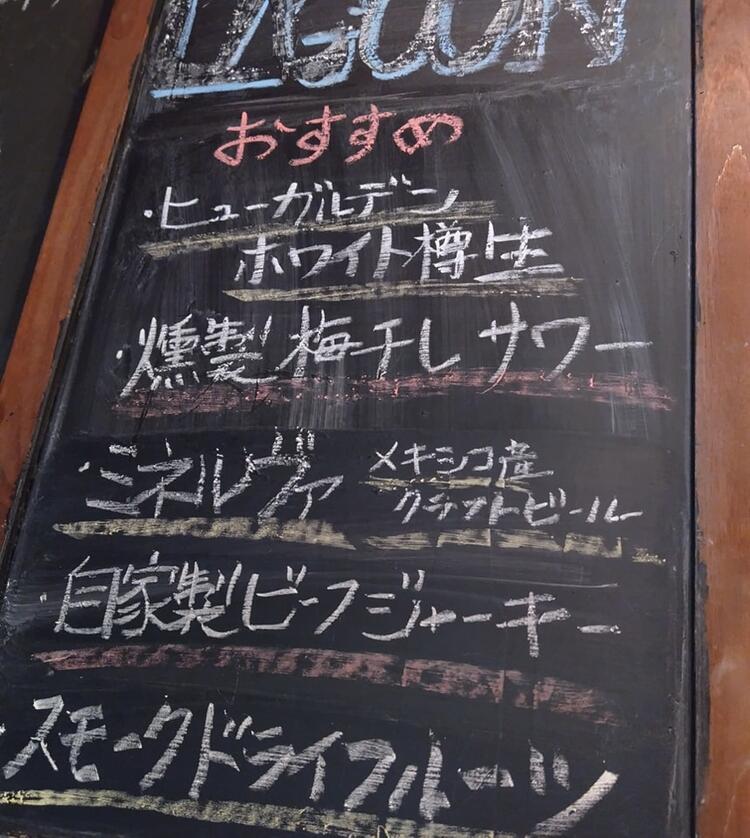 LAGOON
おすすめ
・ヒューガルデン
ホワイト樽生
・燻製梅干しサワー
・ミネルヴァ メキシコ産
クラフトビール
・自家製ビーフジャーキー
・スモークドライフルーツ